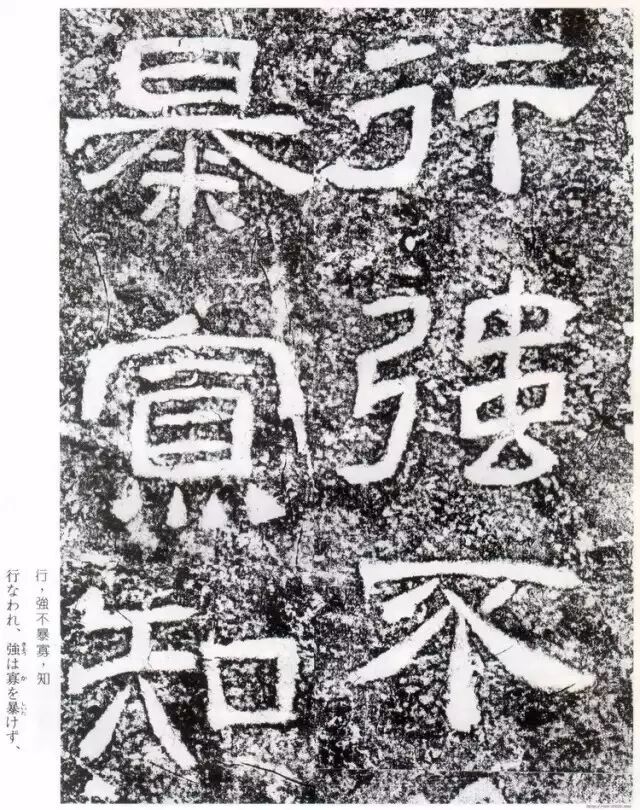 行強不
暴寡知
行，強不暴寡，知
行なわれ、強は寡を暴けず、